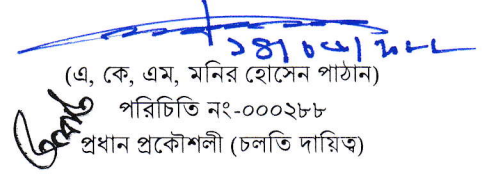 (এ, কে, এম, মনির হোসেন পাঠান)
পরিচিতি নং-০০০২৮৮
প্রধান প্রকৌশলী (চলতি দায়িত্ব)